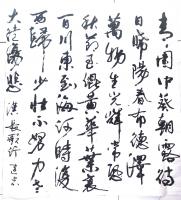 青々園中葵朝露待
日晞陽春布德澤
萬物生光輝常恐
秋節至焜黄華葉衰
百川東到海何時復
西歸少壮不努力老
大徒傷悲 漢